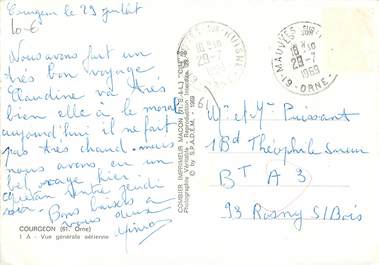 Courgeon le 29 juillet
10 €
Nous avons fait un
très bon voyage
Claudine va très
bien elle à le moral
aujourd'hui il ne fait
pas très chaud. mais
nous avons eu un
bel orage hier
jeudi
soir. Bons baisers à
vous deux
COURGEON (61. Orne)
1 A - Vue générale aérienne
COMBIER IMPRIMEUR MACON (71. S.-&-L.) "CIM"
Photographie Véritable - Reproduction Interdite
© by S.P.A.D.E.M. - 1969
MAUVES SUR HUISNE
18 H10
29-7
1969
61 - ORNE
Mr et Me Puissant
1 Bd Théophile Sueur
BT A 3
93 Rosny S/Bois